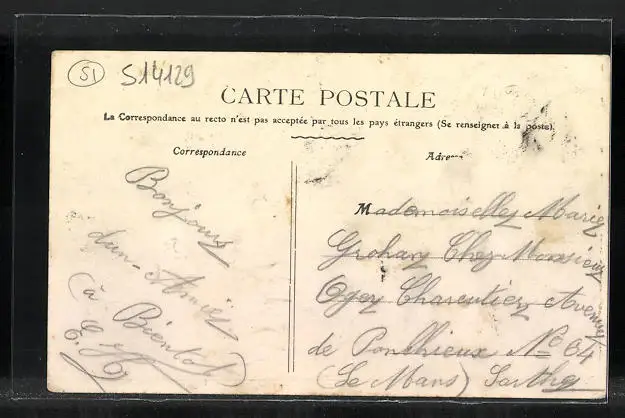 51
S14129
CARTE POSTALE
La Correspondance au recto n'est pas acceptée par tous les pays étrangers (Se renseigner à la poste).
Correspondance
Adresse
Bonjour
d'un Amie
(à Bientot)
Mademoiselle Marie
Grohan Chez Monsieur
Oger Charcutier Avenue
de Ponthieux No 64
(Le Mans) Sarthe